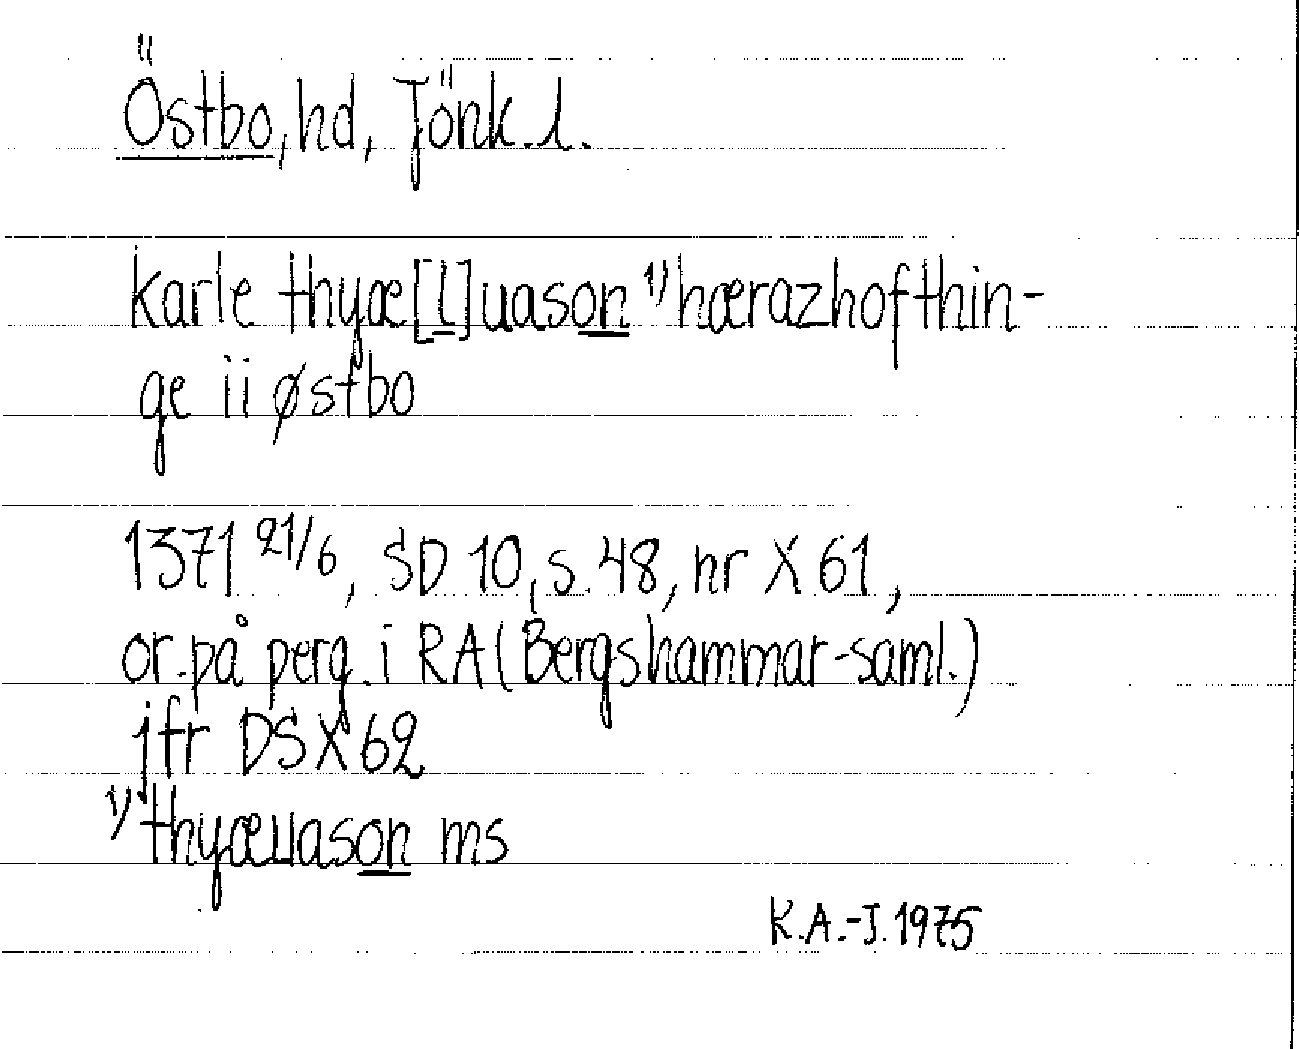 Östbo, hd, Jönk.l.
karle thyæ[l]uason ¹⁾ hærazhofthin-
ge ii østbo
1371 21/6, SD 10, s. 48, nr X 61,
or. på perg. i RA (Bergshammar-saml.)
jfr DS X 62
¹⁾ thyæuason ms
K.A.-J. 1975